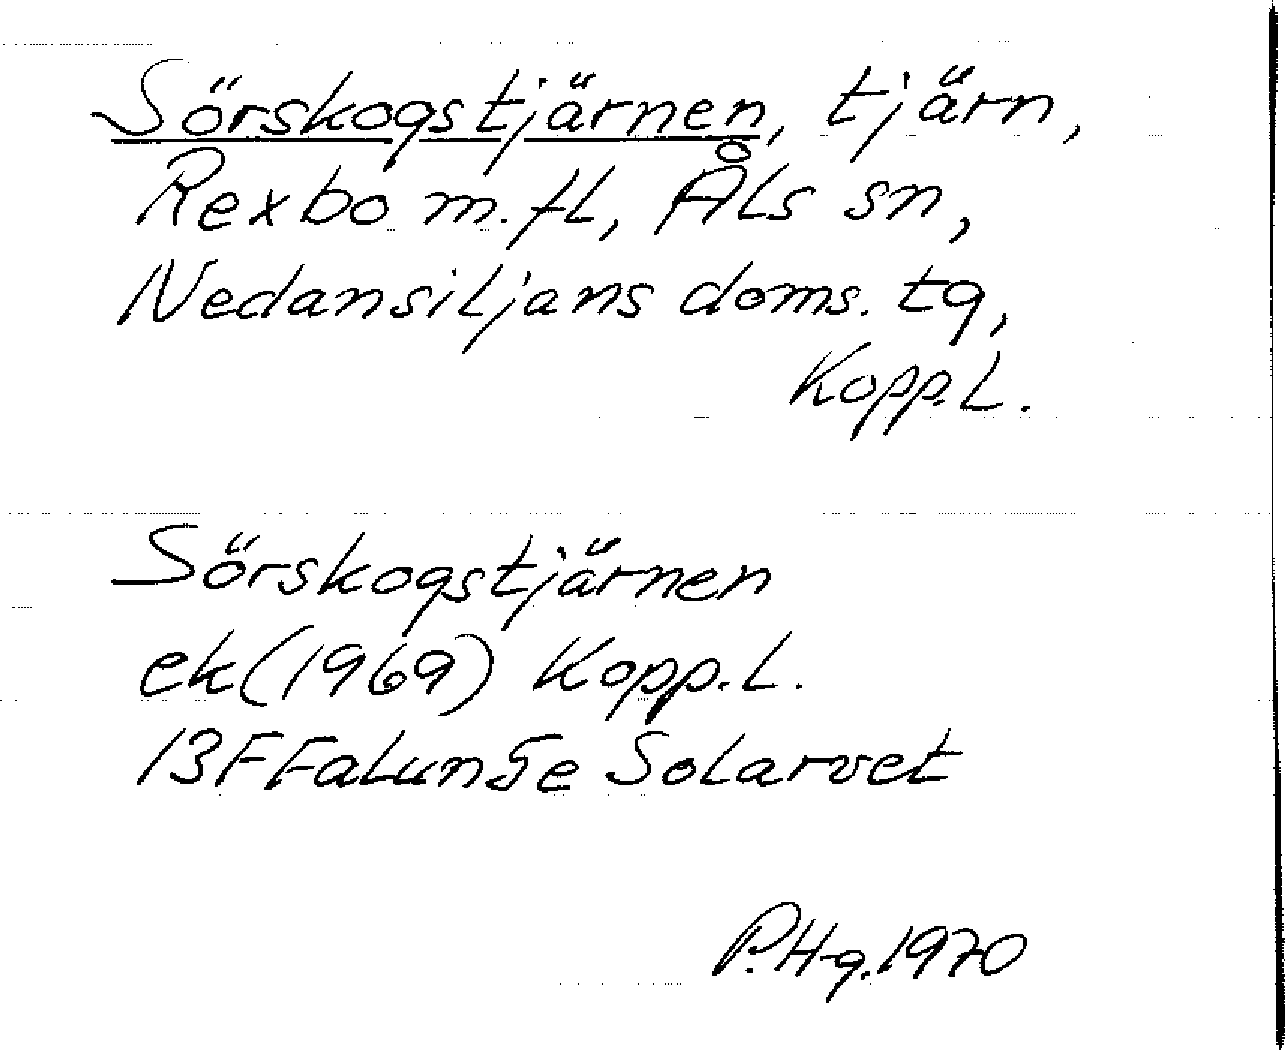 Sörskogstjärnen, tjärn,
Rexbo m.fl, Åls sn,
Nedansiljans doms. tg,
Kopp.L.
Sörskogstjärnen
ek(1969) Kopp.L.
13F Falun 5e Solarvet
P.H-g.1970